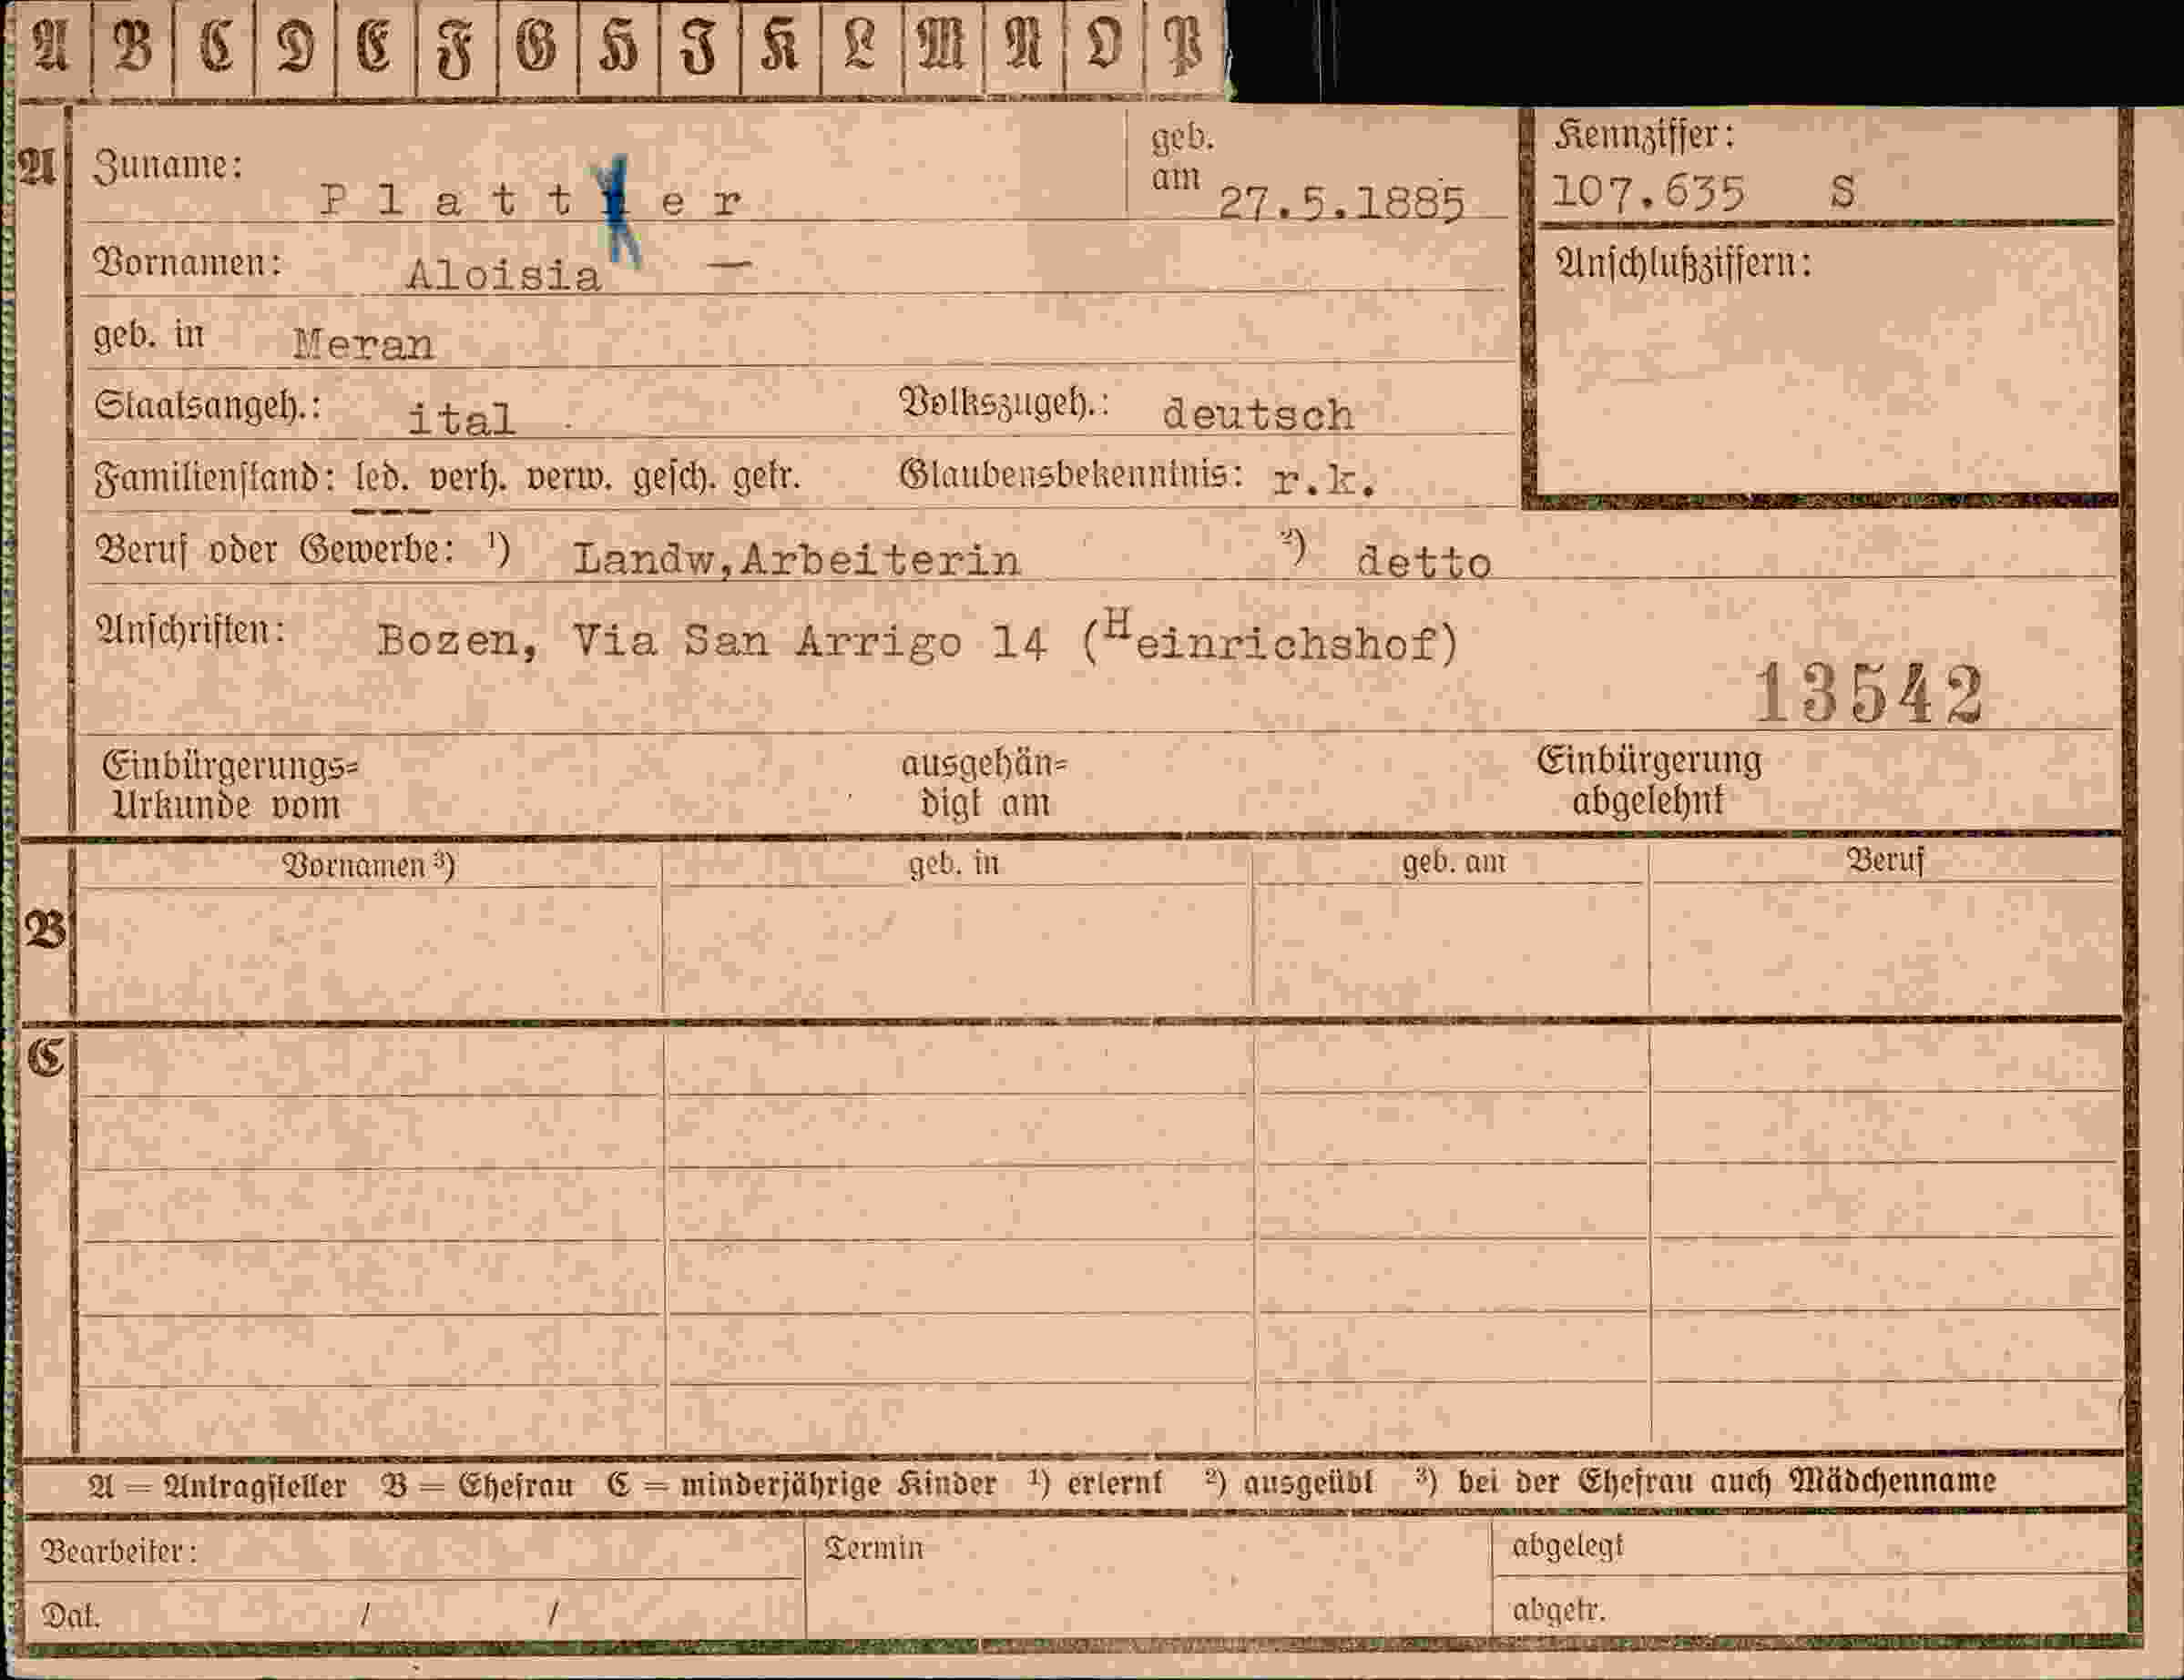 A B C D E F G H J K L M N O P
A Zuname: Platter geb. am 27.5.1885 Kennziffer: 107.635 S
Vornamen: Aloisia — Anschlußziffern:
geb. in Meran
Staatsangeh.: ital . Volkszugeh.: deutsch
Familienstand: led. verh. verw. gesch. getr. Glaubensbekenntnis: r.k.
Beruf oder Gewerbe: ¹) Landw,Arbeiterin ²) detto
Anschriften: Bozen, Via San Arrigo 14 (Heinrichshof)
13542
Einbürgerungs= ausgehän= Einbürgerung
Urkunde vom digt am abgelehnt
Vornamen ³) geb. in geb. am Beruf
B
C
A = Antragsteller B = Ehefrau C = minderjährige Kinder ¹) erlernt ²) ausgeübt ³) bei der Ehefrau auch Mädchenname
Bearbeiter: Termin abgelegt
Dat. / / abgetr.